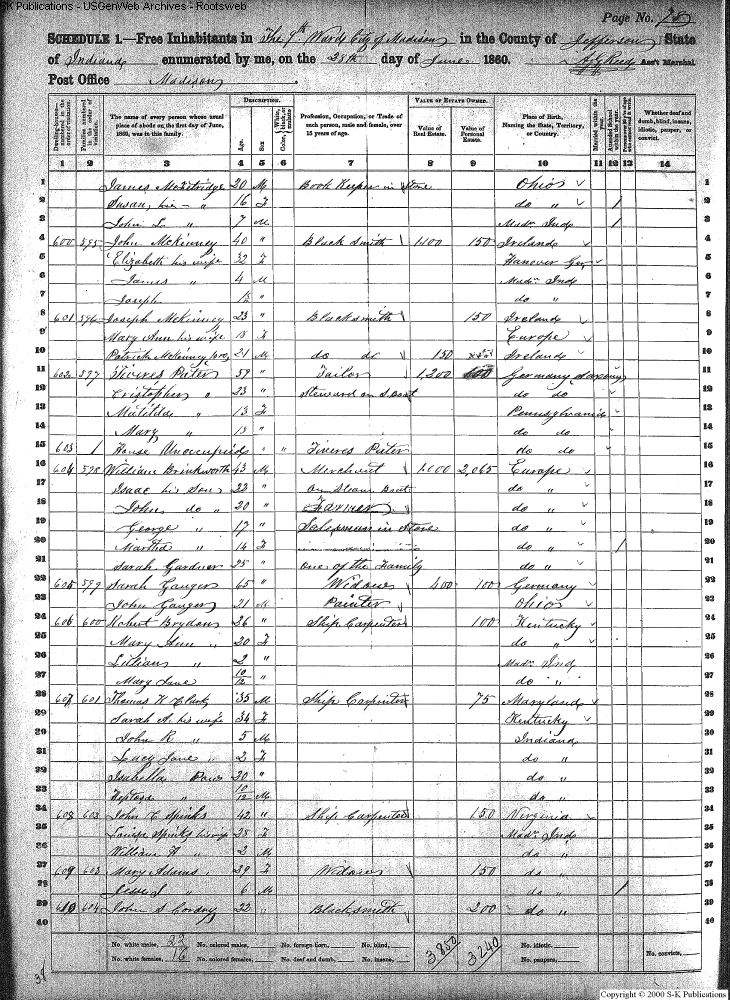 S-K Publications - USGenWeb Archives - Rootsweb
Page No. 78
SCHEDULE 1.—Free Inhabitants in The 7th Ward City of Madison in the County of Jefferson State
of Indiana enumerated by me, on the 28th day of June 1860. Ass't Marshal
Post Office Madison
Dwelling-houses— numbered in the order of visitation.
Families numbered in the order of visitation.
The name of every person whose usual place of abode on the first day of June, 1860, was in this family.
DESCRIPTION.
Age. Sex. White, black, or mulatto. Color,
Profession, Occupation, or Trade of each person, male and female, over 15 years of age.
VALUE OF ESTATE OWNED.
Value of Real Estate. Value of Personal Estate.
Place of Birth, Naming the State, Territory, or Country.
Married within the year. Attended School within the year.
Whether deaf and dumb, blind, insane, idiotic, pauper, or convict.
1 2 3 4 5 6 7 8 9 10 11 12 13 14
1 James 20 M Book Keeper in Store Ohio 1
2 Susan, his " 16 F do " / 2
3 John L. " 7 M Madn Ind / 3
4 600 595 John McKinney 40 " Black Smith 1100 150 Ireland 4
5 Elizabeth his wife 32 F Hanover Ger 5
6 James " 4 M Madn Ind 6
7 Joseph " do " 7
8 601 596 Joseph McKinney 23 " Blacksmith 150 Ireland 8
9 Mary Ann his wife 18 F Europe 9
10 Patrick McKinney 21 M do do 150 Ireland 10
11 602 597 Tiveres Puter 59 " Tailor 1,200 Germany 11
12 Cristopher " 23 " Steward on S. Boat do do 12
13 Matilda " 13 F Pennsylvania 13
14 Mary " 13 " do do 14
15 603 / House Unoccupied " " Tiveres Puter do do 15
16 604 598 William Brinkworth 43 M Merchant 1,000 2,065 Europe 16
17 Isaac his Son 22 " On Steam Boat do " 17
18 John do " 20 " Farmer do " 18
19 George " 17 " Salesman in Store do " 19
20 Martha " 14 F do " / 20
21 Sarah Gardner 25 " One of the Family do " 21
22 605 599 Sarah Ganger 65 " Widow 400 100 Germany 22
23 John Ganger 21 M Painter Ohio 23
24 606 600 Robert Brydon 26 " Ship Carpenter 100 Kentucky 24
25 Mary Ann " 20 F do " 25
26 Lillian " 2 " Madn Ind 26
27 Mary Jane 10/12 " do " 27
28 607 601 Thomas K Clark 35 M Ship Carpenter 75 Maryland 28
29 Sarah A. his wife 34 F Kentucky 29
30 John R " 5 M Indiana 30
31 Lucy Jane " 2 F do " 31
32 Isabella 20 " do " 32
33 " 10/12 M do " 33
34 608 602 John C Spinks 42 " Ship Carpenter 150 Virginia 34
35 Louisa Spinks his wife 28 F Madn Ind 35
36 William " 2 M do " 36
37 609 603 Mary Adams 39 F Widow 150 do " 37
38 Jesse " 6 M do " / 38
39 610 604 John S Cordry 22 " Blacksmith 200 do " 39
40 40
No. white males, 23 No. colored males, No. foreign born, No. blind, 3,850 3240 No. idiotic, No. convicts,
No. white females, 16 No. colored females, No. deaf and dumb, No. insane, No. paupers,
Copyright © 2000 S-K Publications